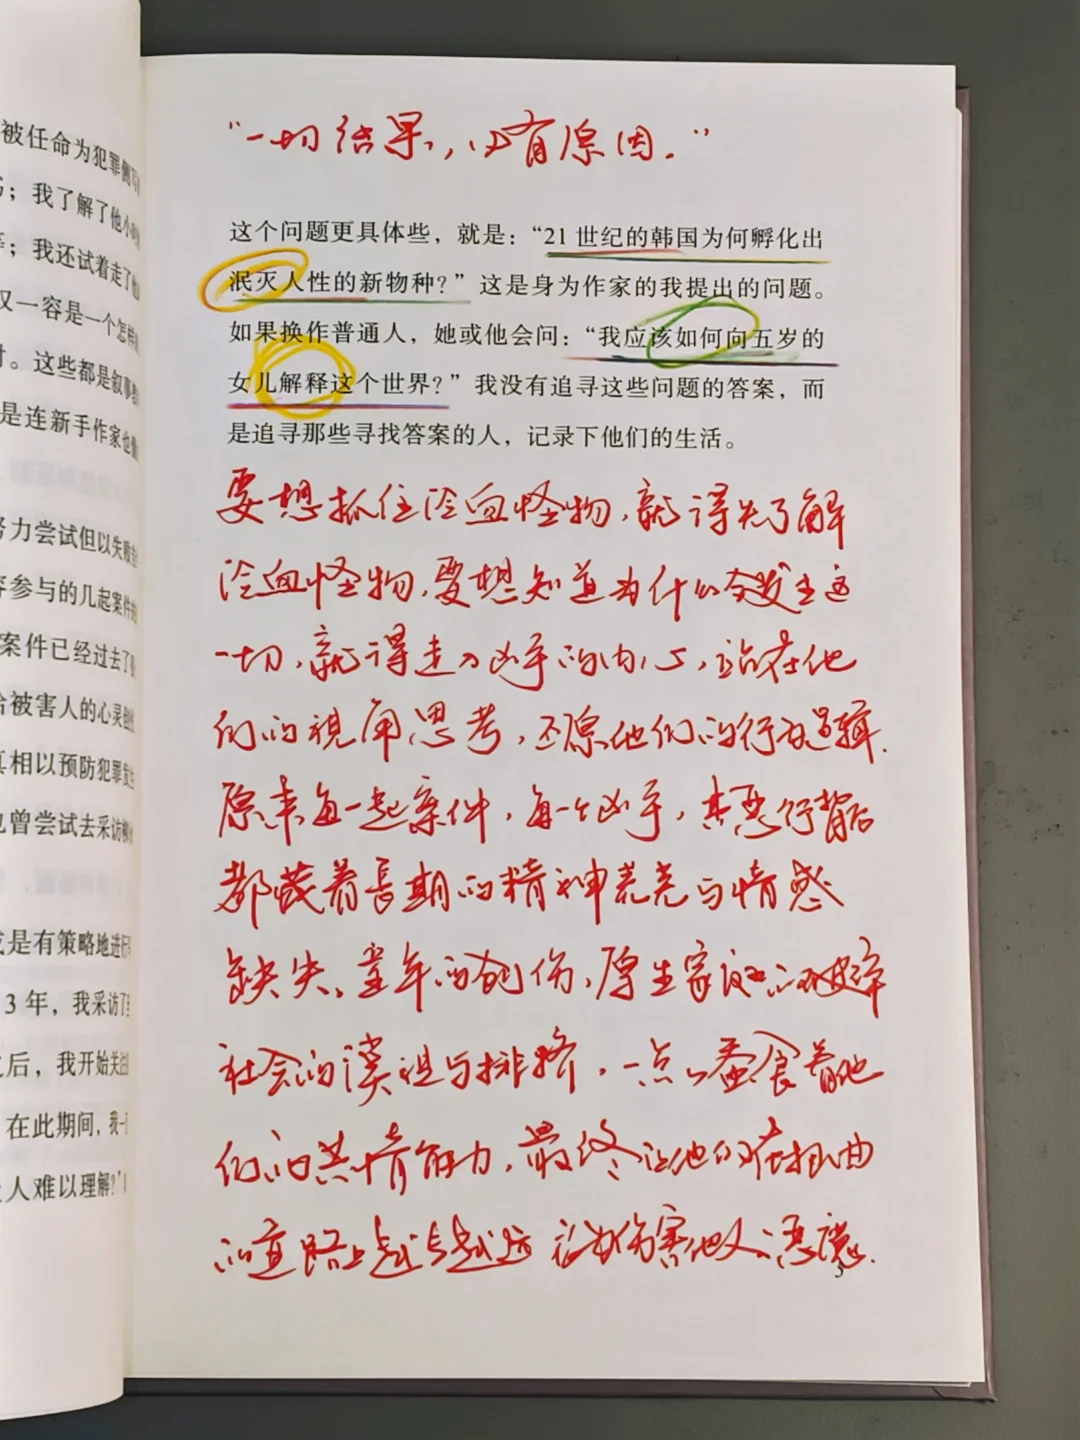 被任命为犯罪侧写
；我了解了他小时
；我还试着走了他
又一容是一个怎样
。这些都是叙事
是连新手作家也
努力尝试但以失败
容参与的几起案件
案件已经过去了
给被害人的心灵创
真相以预防犯罪发
也曾尝试去采访柳
或是有策略地进行
3年，我采访了
之后，我开始关
在此期间，我一
人难以理解？”
“一切结果，必有原因。”
这个问题更具体些，就是：“21世纪的韩国为何孵化出
泯灭人性的新物种？”这是身为作家的我提出的问题。
如果换作普通人，她或他会问：“我应该如何向五岁的
女儿解释这个世界？”我没有追寻这些问题的答案，而
是追寻那些寻找答案的人，记录下他们的生活。
要想抓住冷血怪物，就得先了解
冷血怪物，要想知道为什么会发生这
一切，就得走入凶手的内心，站在他
们的视角思考，还原他们的行为逻辑.
原来每一起案件，每一个凶手，其恶行背后
都藏着长期的精神荒芜与情感
缺失、童年的创伤，原生家庭的破碎
社会的漠视与排挤，一点点蚕食着他
们的共情能力，最终让他们在扭曲
的道路上越走越远 沦为伤害他人的恶魔.
3